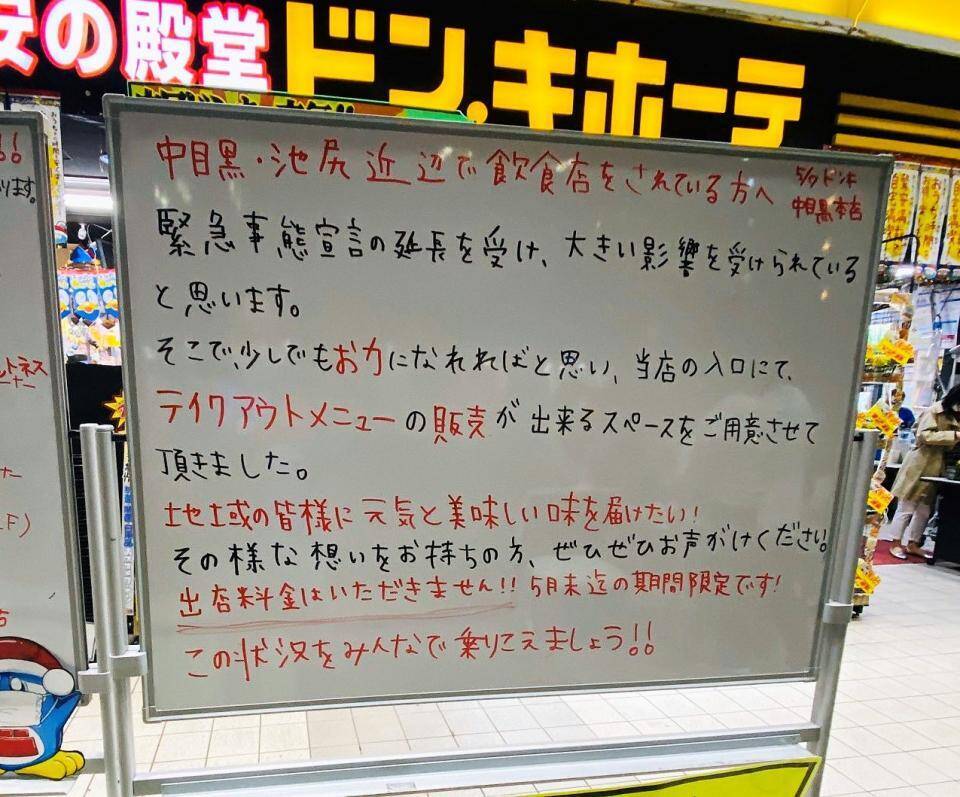 安の殿堂
ドン.キホーテ
中目黒・池尻近辺で飲食店をされている方へ
中目黒本店
緊急事態宣言の延長を受け、大きい影響を受けられている
と思います。
そこで、少しでもお力になれればと思い、当店の入口にて、
テイクアウトメニューの販売が出来るスペースをご用意させて
頂きました。
地域の皆様に元気と美味しい味を届けたい!
その様な想いをお持ちの方、ぜひぜひお声がけください。
出店料金はいただきません!! 5月末迄の期間限定です!
この状況をみんなで乗りこえましょう!!